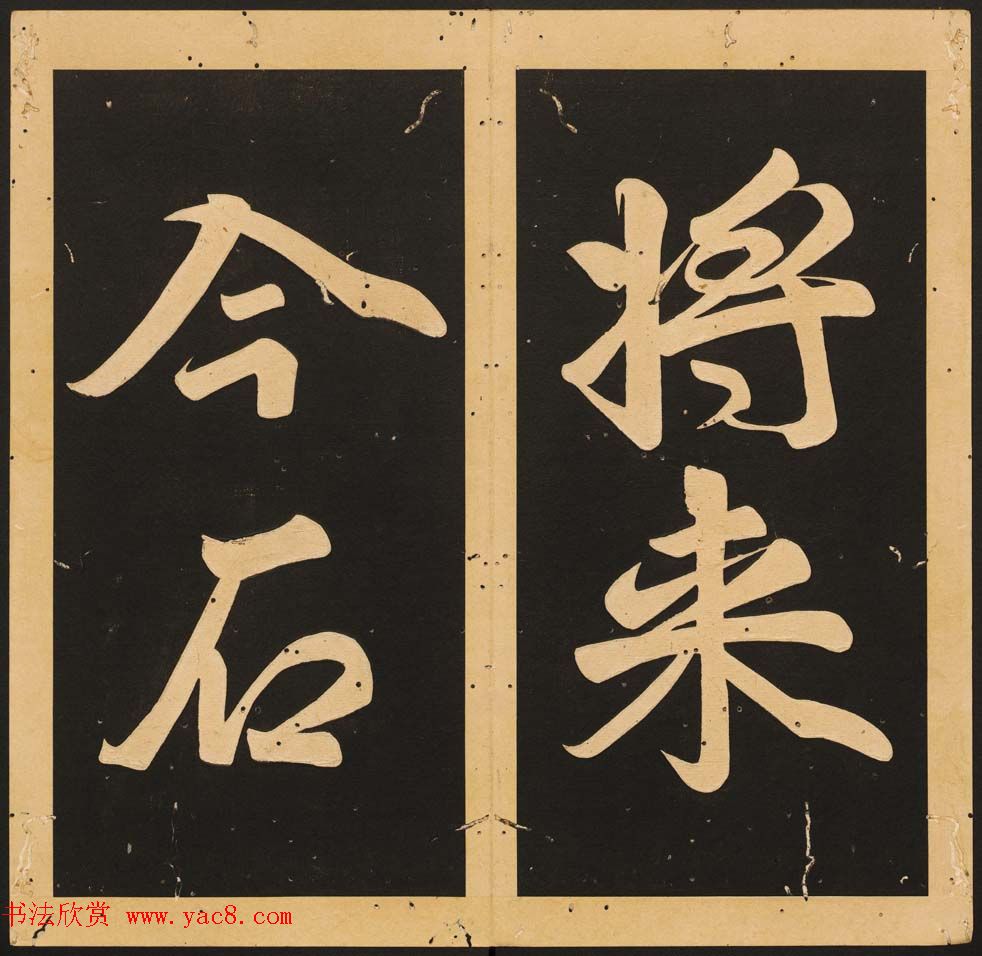 将来
今石
书法欣赏 www.yac8.com